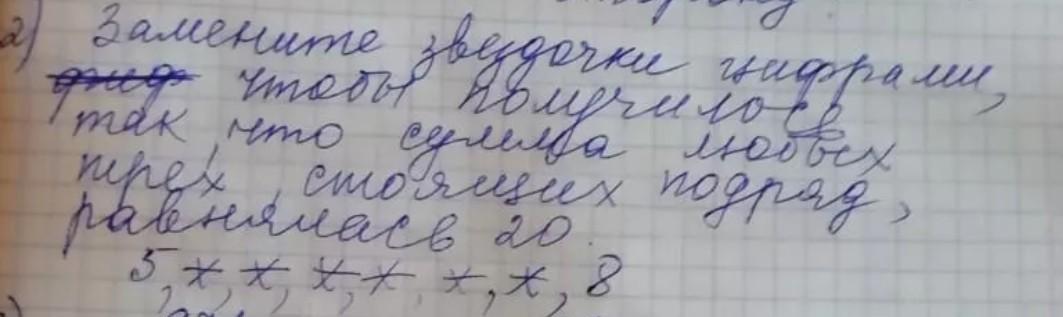 2) Замените звездочки цифрами,
чтобы получилось
так, что сумма любых
трех, стоящих подряд,
равнялась 20.
5, *, *, *, *, *, *, 8